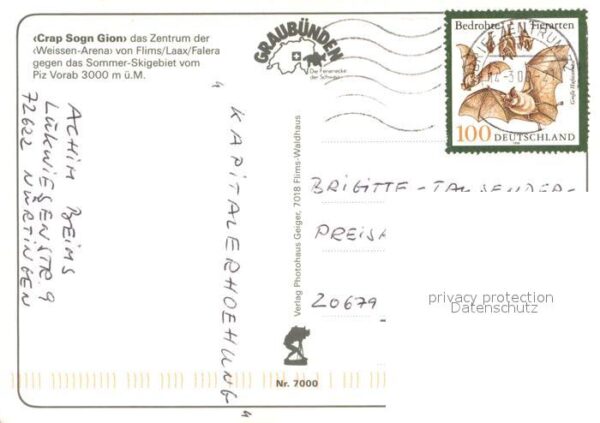 ‹Crap Sogn Gion› das Zentrum der
‹Weissen-Arena› von Flims/Laax/Falera
gegen das Sommer-Skigebiet vom
Piz Vorab 3000 m ü.M.
GRAUBÜNDEN
Die Ferienecke
der Schweiz
Bedrohte Tierarten
100 DEUTSCHLAND
ACHIM BEIMS
LUKWIESENSTR. 9
72622 NÜRTINGEN
" KAPITALERHOEHUNG "
Verlag Photohaus Geiger, 7018 Flims-Waldhaus
BRIGITTE-TAUSENDER-
PREISA
20679
privacy protection
Datenschutz
Nr. 7000